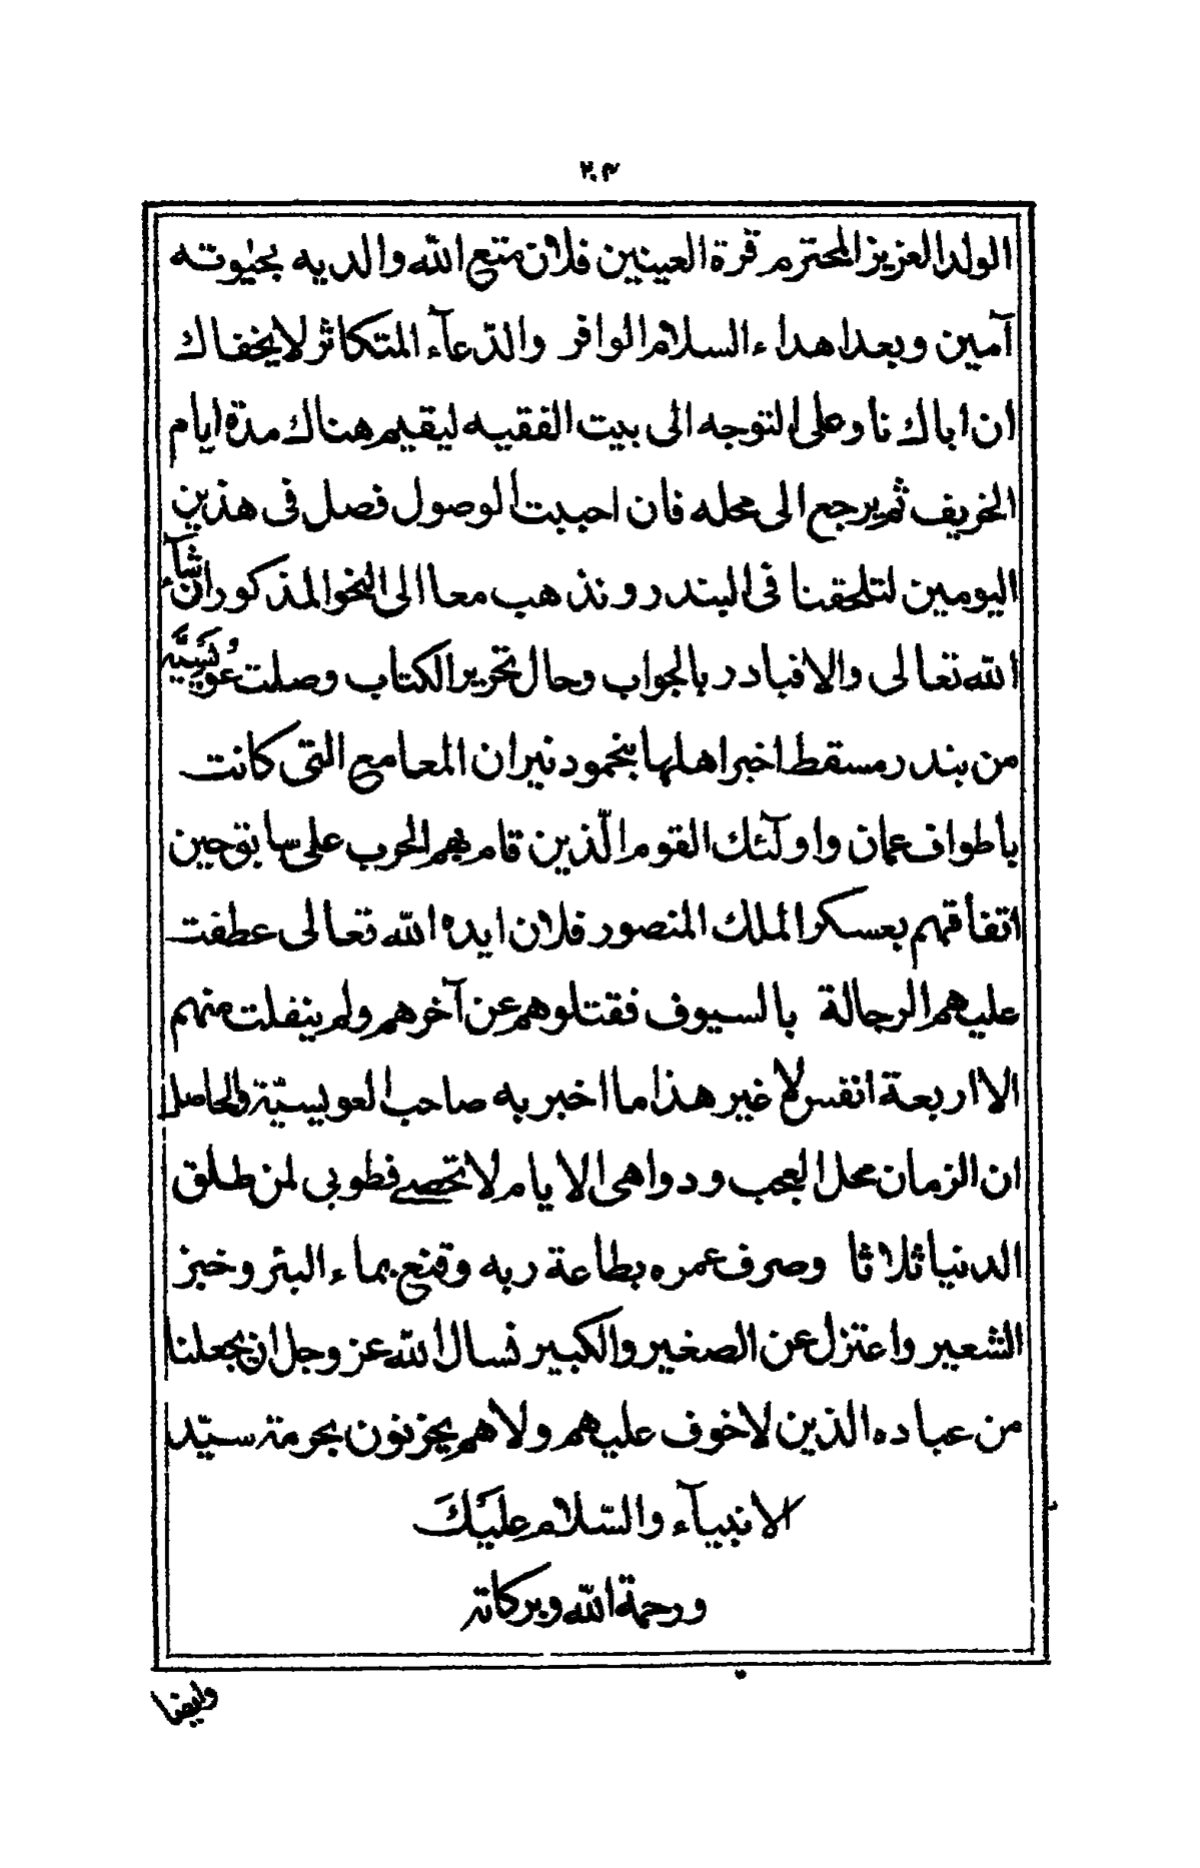 ٢٠٣
الولد العزيز المحترم قرة العينين فلان متع الله والديه بحيوته
آمين وبعد اهداء السلام الوافر والدّعآء المتكاثر لا يخفاك
ان اباك ناو على التوجه الى بيت الفقيه ليقيم هناك مدة ايام
الخريف ثم يرجع الى محله فان احببت الوصول فصل فى هذين
اليومين لتلحقنا فى البندر ونذهب معا الى النحو المذكور ان شآء
الله تعالى والا فبادر بالجواب وحال تحرير الكتاب وصلت عُوَيسَيَّه
من بندر مسقط اخبر اهلها بخمود نيران المعامع التى كانت
باطواف عمان واولٓئك القوم الّذين قام بهم الحرب على ساق حين
اتفاقهم بعسكر الملك المنصور فلان ايده الله تعالى عطفت
عليهم الرجالة بالسيوف فقتلوهم عن آخرهم ولم ينفلت منهم
الا اربعة انفس لا غير هذا ما اخبر به صاحب العويسيّة والحاصل
ان الزمان محل العجب ودواهى الايام لا تحصى فطوبى لمن طلق
الدنيا ثلاثا وصرف عمره بطاعة ربه وقنع بماء البئر وخبز
الشعير واعتزل عن الصغير والكبير نسال الله عز وجل ان يجعلنا
من عباده الذين لا خوف عليهم ولا هم يحزنون بحرمة سيّد
الانبيآء والسّلام عليَكَ
ورحمة الله وبركاته
وايضا